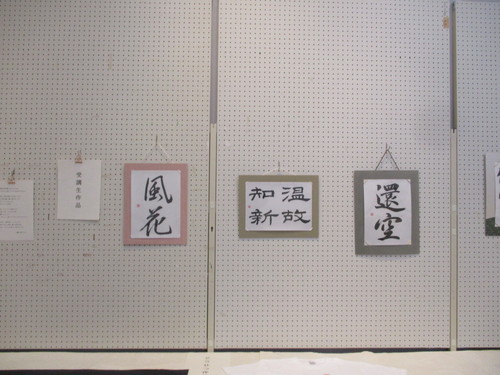 受講生作品
風花
温故
知新
還空